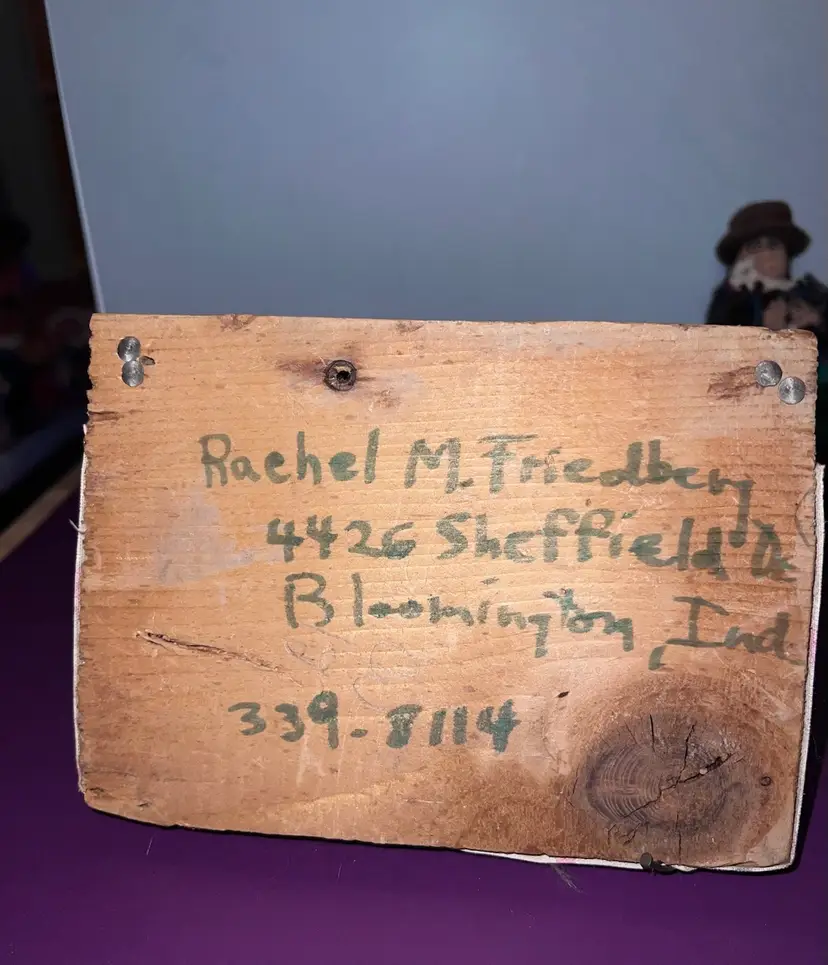 Rachel M. Friedberg
4426 Sheffield Dr
Bloomington, Ind.
339-8114